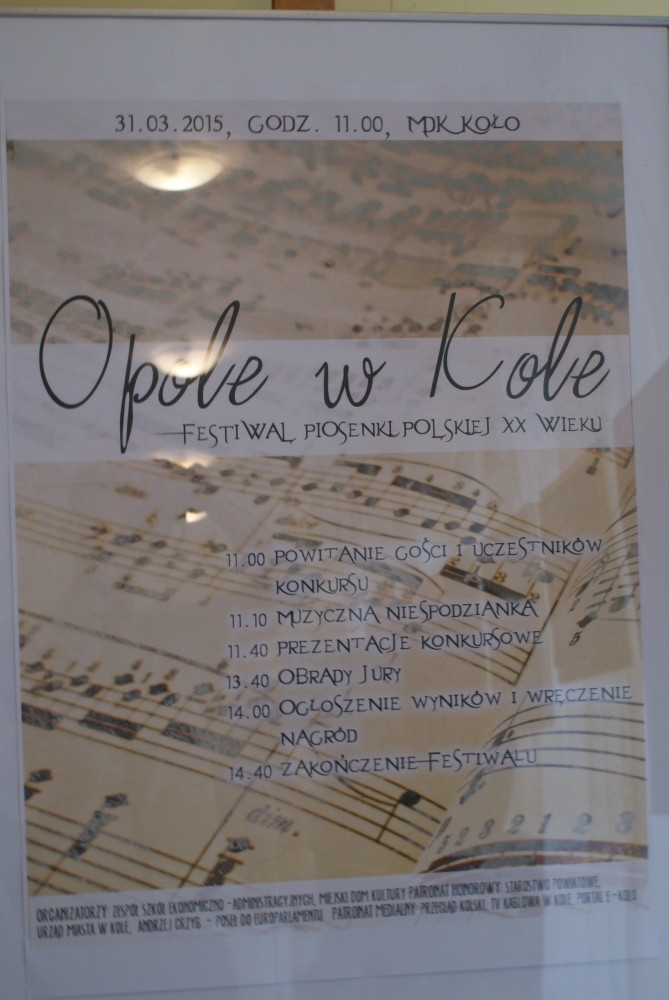 31.03.2015, GODZ. 11.00, MDK KOŁO
Opole w Kole
FESTIWAL PIOSENKI POLSKIEJ XX WIEKU
11.00 POWITANIE GOŚCI I UCZESTNIKÓW
KONKURSU
11.10 MUZYCZNA NIESPODZIANKA
11.40 PREZENTACJE KONKURSOWE
13.40 OBRADY JURY
14.00 OGŁOSZENIE WYNIKÓW I WRĘCZENIE
NAGRÓD
14.40 ZAKOŃCZENIE FESTIWALU
dim.
5 2 3 2 1 2 3
ORGANIZATORZY: ZESPÓŁ SZKÓŁ EKONOMICZNO-ADMINISTRACYJNYCH, MIEJSKI DOM KULTURY PATRONAT HONOROWY: STAROSTWO POWIATOWE,
URZĄD MIASTA W KOLE, ANDRZEJ GRZYB - POSEŁ DO EUROPARLAMENTU PATRONAT MEDIALNY: PRZEGLĄD KOLSKI, TV KABLOWA W KOLE, PORTAL E-KOŁO